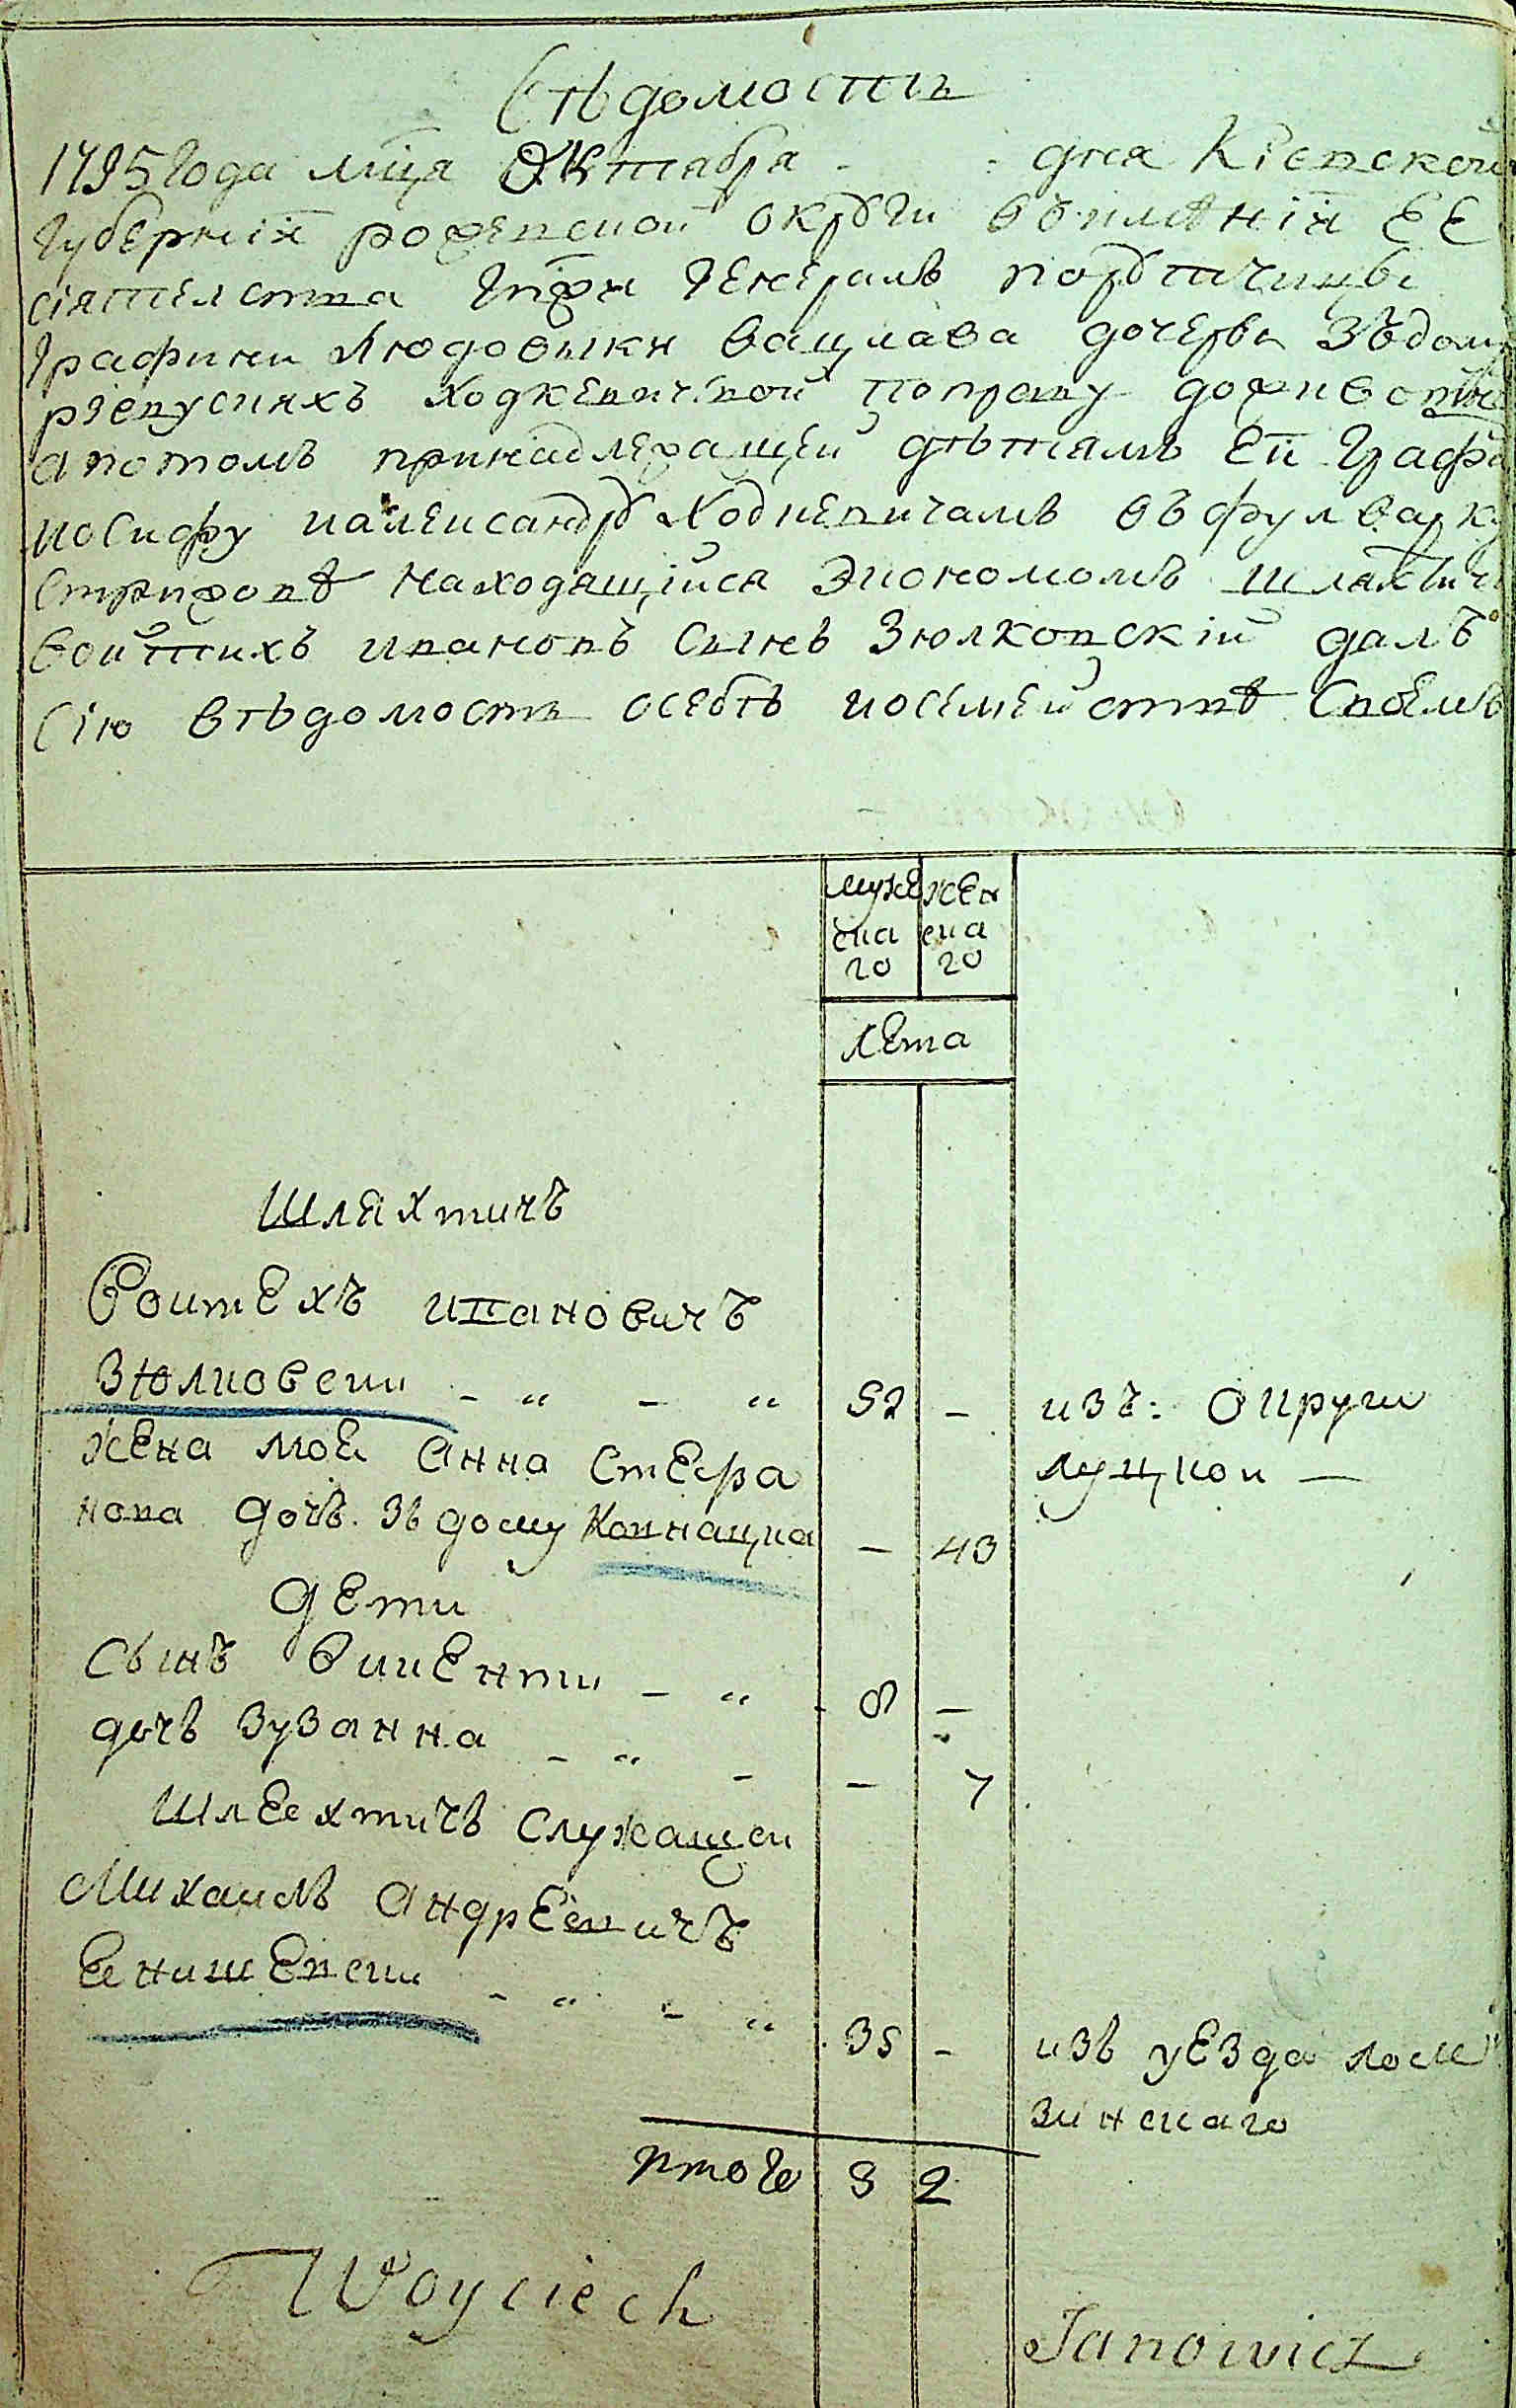 Вѣдомость
1795 Года мца Октября - : дня Кіевской
Губерніи роженской округи вѣименіи ЕЕ
сіятелства Гпжи Генералъ порутчицы
Графини Людовыки вацлава дочеры Зъдому
ржевускихъ ходкевичевой поправу доживотному
апотомъ принадлежащей дѣтямъ Ей Графамъ
иосифу иалександру Ходкевичамъ въфулварку
Стрижовѣ находящійся Экономомъ шляхтичъ
войтихъ ивановъ Сынъ Зюлковскій далъ
Сію вѣдомость осебѣ иосемействѣ Своемъ
мужеска го
женска го
лета
Шляхтичъ
Воитехъ ивановичъ
Зюлковски - " - " 52 - изъ: округи
жена моя анна стефа луцкои —
нова дочъ. Зъ дому - 43
дети
сынъ вицентии - " - 8 -
дочъ зузанна - " - - 7
шляхтичъ служащеи
Михаилъ андреевичъ
Енишевски - " - " 35 - изъ уезда лом
зинскаго
итого 3 2
Woyciech
Janowicz